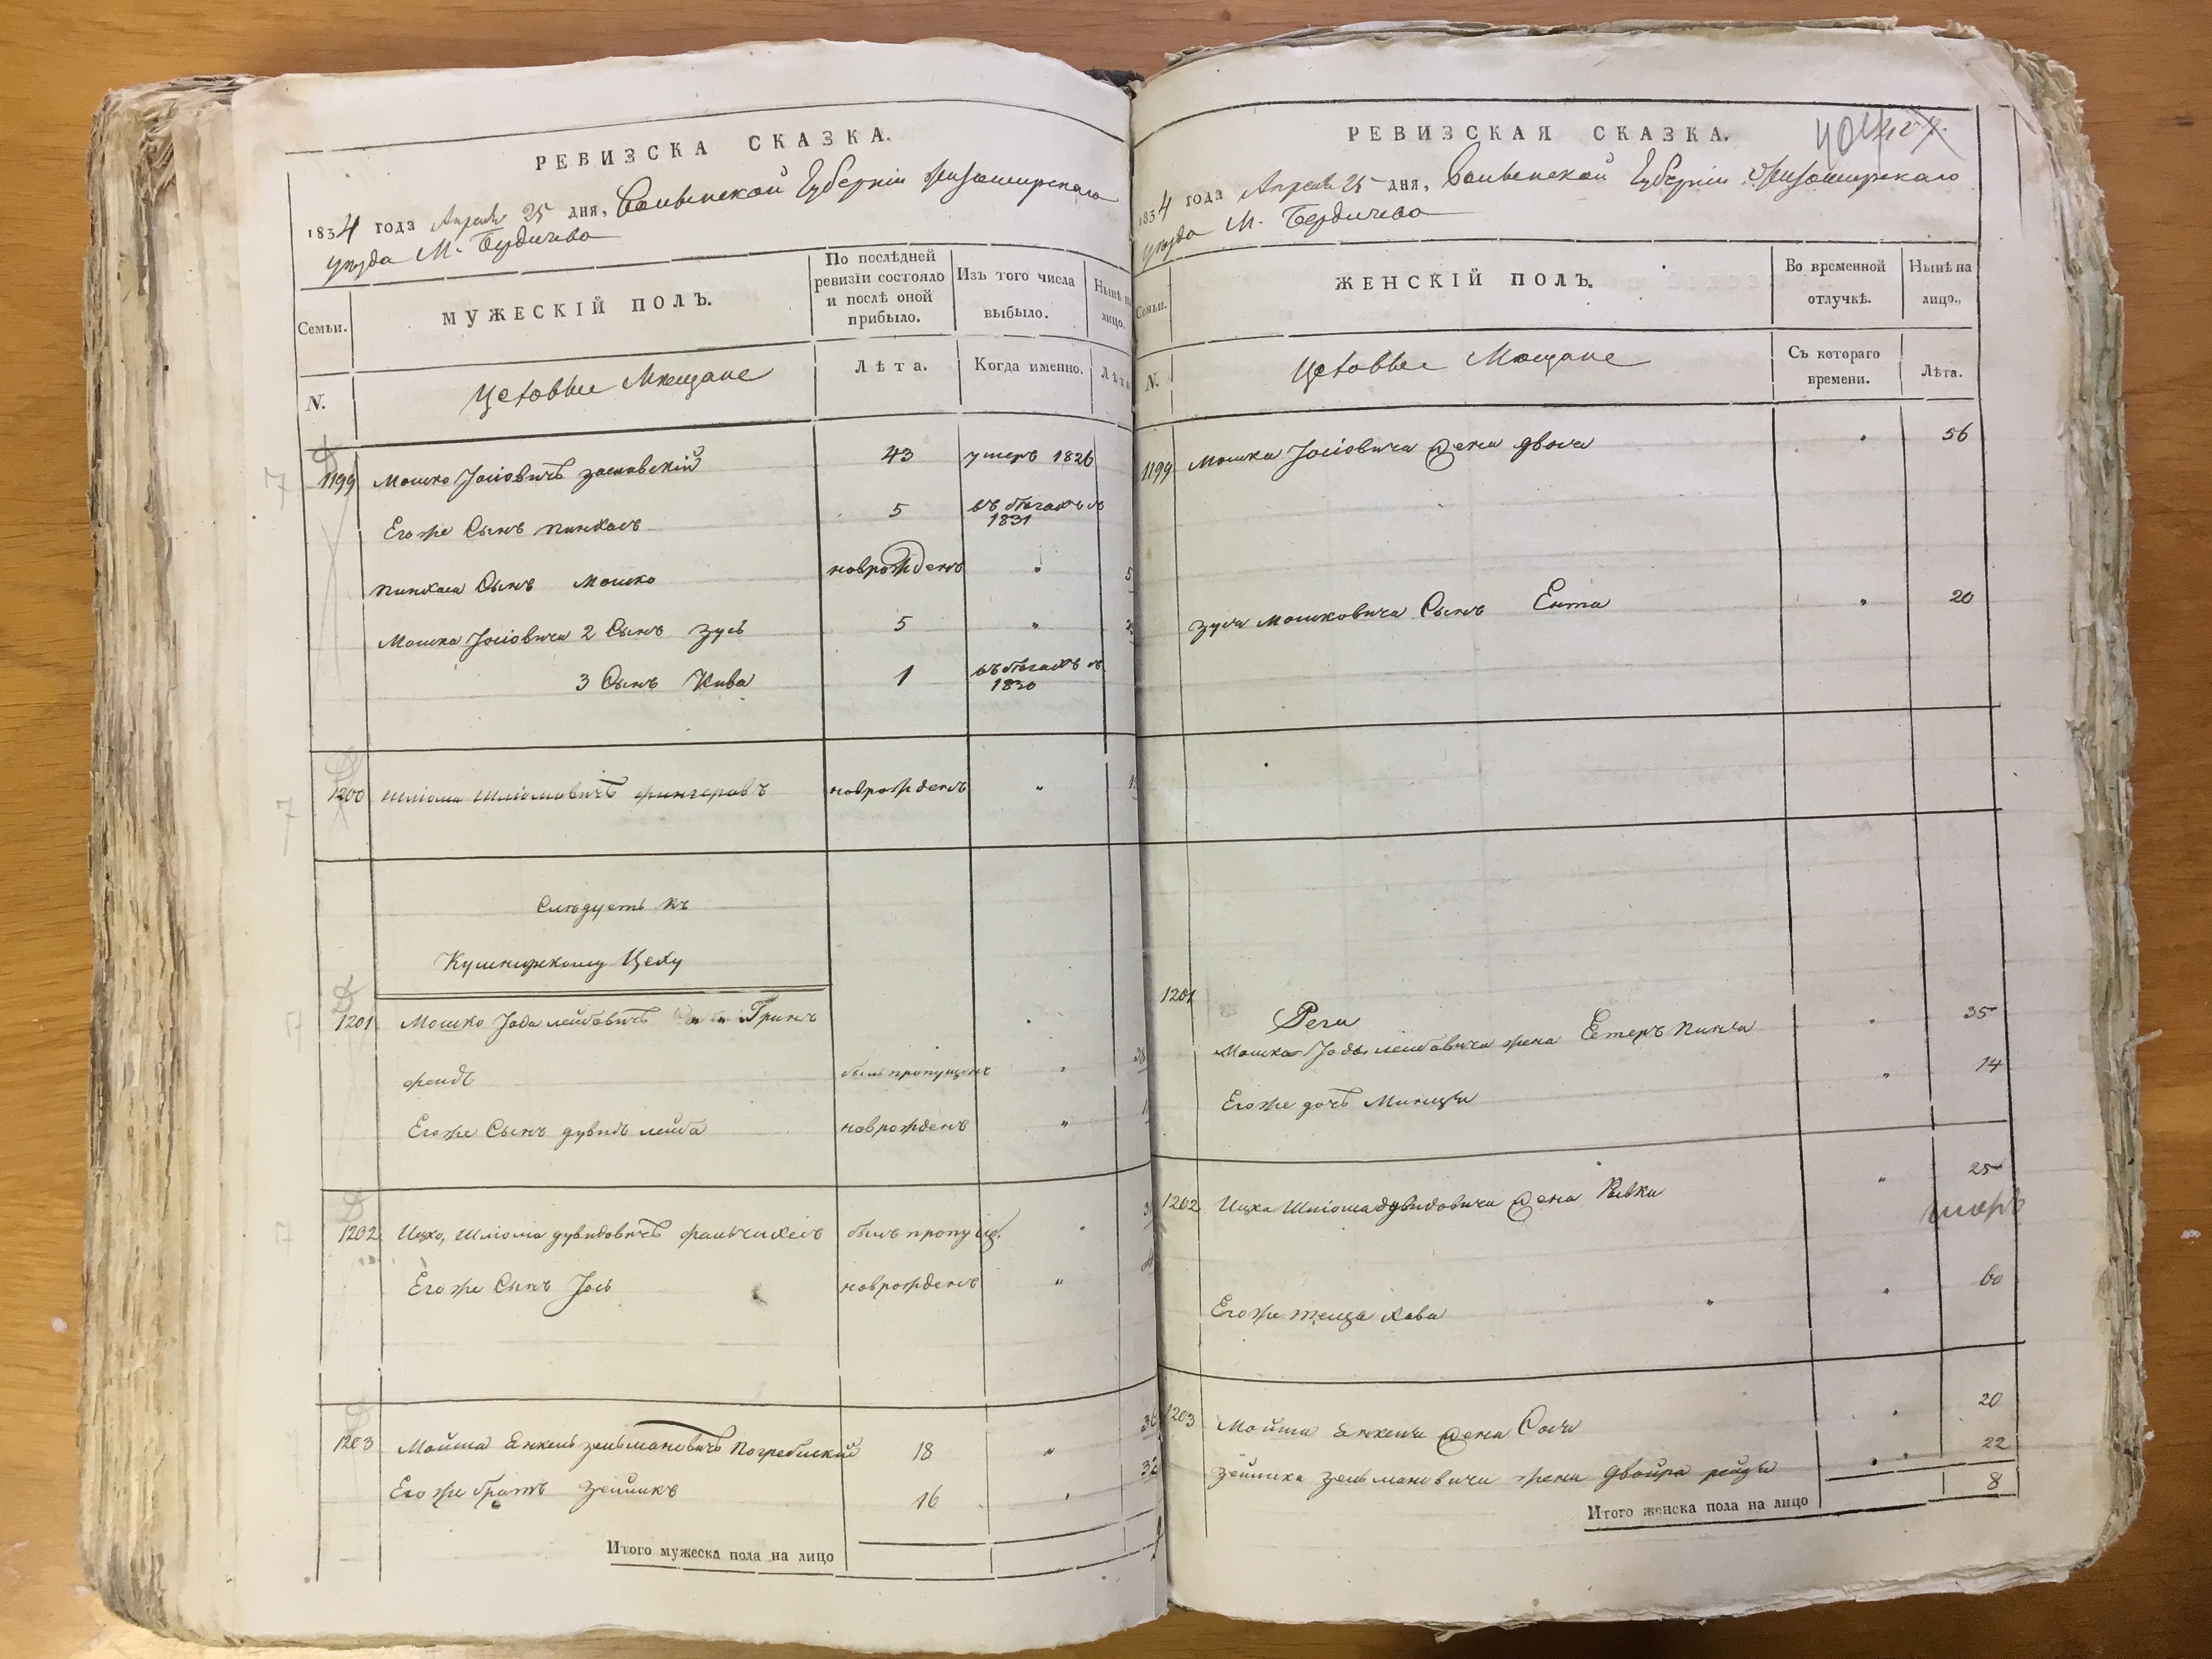 РЕВИЗСКА СКАЗКА.
1834 года Апреля 25 дня, Волынской Губернiи Житомирскаго
уезда М. Бердичева
Семьи.
МУЖЕСКIЙ ПОЛЪ.
По послѣдней
ревизiи состояло
и послѣ оной
прибыло.
Изъ того числа
выбыло.
Нынѣ на
лицо.
N.
Цеховые Мещане
Лѣта.
Когда именно.
Лѣта
1199 Мошко Iосiовичъ 43 умеръ 1826
Его же Сынъ Пинхасъ 5 въ бегахъ съ
1831
Пинхаса Сынъ Мошко новрожденъ "
Мошка Iосiовича 2 Сынъ Зусь 5 "
3 Сынъ Кива 1 въ бегахъ съ
1830
1200 Шлiома Шлiомовичъ новрожденъ "
Следуетъ къ
Кушнирскому Цеху
1201 Мошко Iода Лейбовичъ Грин
фендъ былъ пропущенъ "
Его же Сынъ Дувидъ Лейба новрожденъ "
1202 Ицко, Шлiома Дувидовичъ былъ пропущ. "
Его же Сынъ Iось новрожденъ "
1203 Мойша Енкель Зельмановичъ Погребиский 18 " 36
Его же братъ Зейликъ 16 " 32
Итого мужеска пола на лицо
РЕВИЗСКАЯ СКАЗКА.
1834 года Апреля 25 дня, Волынской Губернiи Житомирскаго
уезда М. Бердичева
Семьи.
ЖЕНСКIЙ ПОЛЪ.
Во временной
отлучкѣ.
Нынѣ на
лицо.,
N.
Цеховые Мещане
Съ котораго
времени.
Лѣта.
1199 Мошка Iосiовича жена Двося " 56
Зуся Мошковича Сынъ Ента " 20
1201
Песи
Мошка Iоды Лейбовича жена Естеръ " 35
Его же дочь Миндзи " 14
1202 Ицка Шлiома Дувидовича жена Ривка " 25
Его же теща Хава " 60
1203 Мойша Енкеля жена Сося " 20
Зейлика Зельмановича жена Двойра Рейзя " 22
Итого женска пола на лицо 8